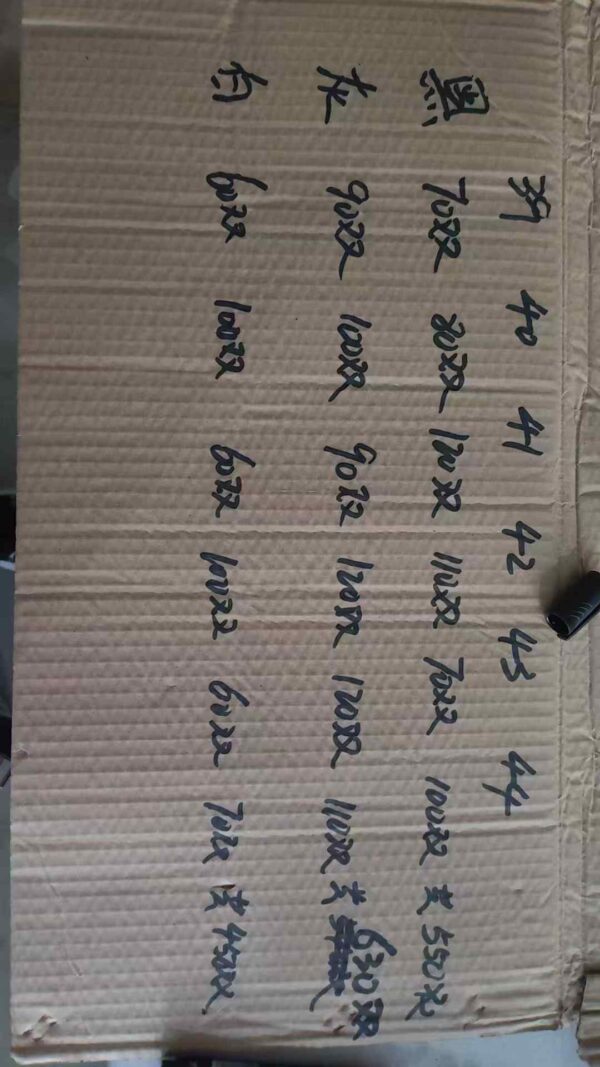 39 40 41 42 43 44
黑 70双 80双 120双 110双 70双 100双 共550双
灰 90双 100双 90双 120双 120双 110双 共630双
白 60双 100双 60双 100双 60双 70双 共450双